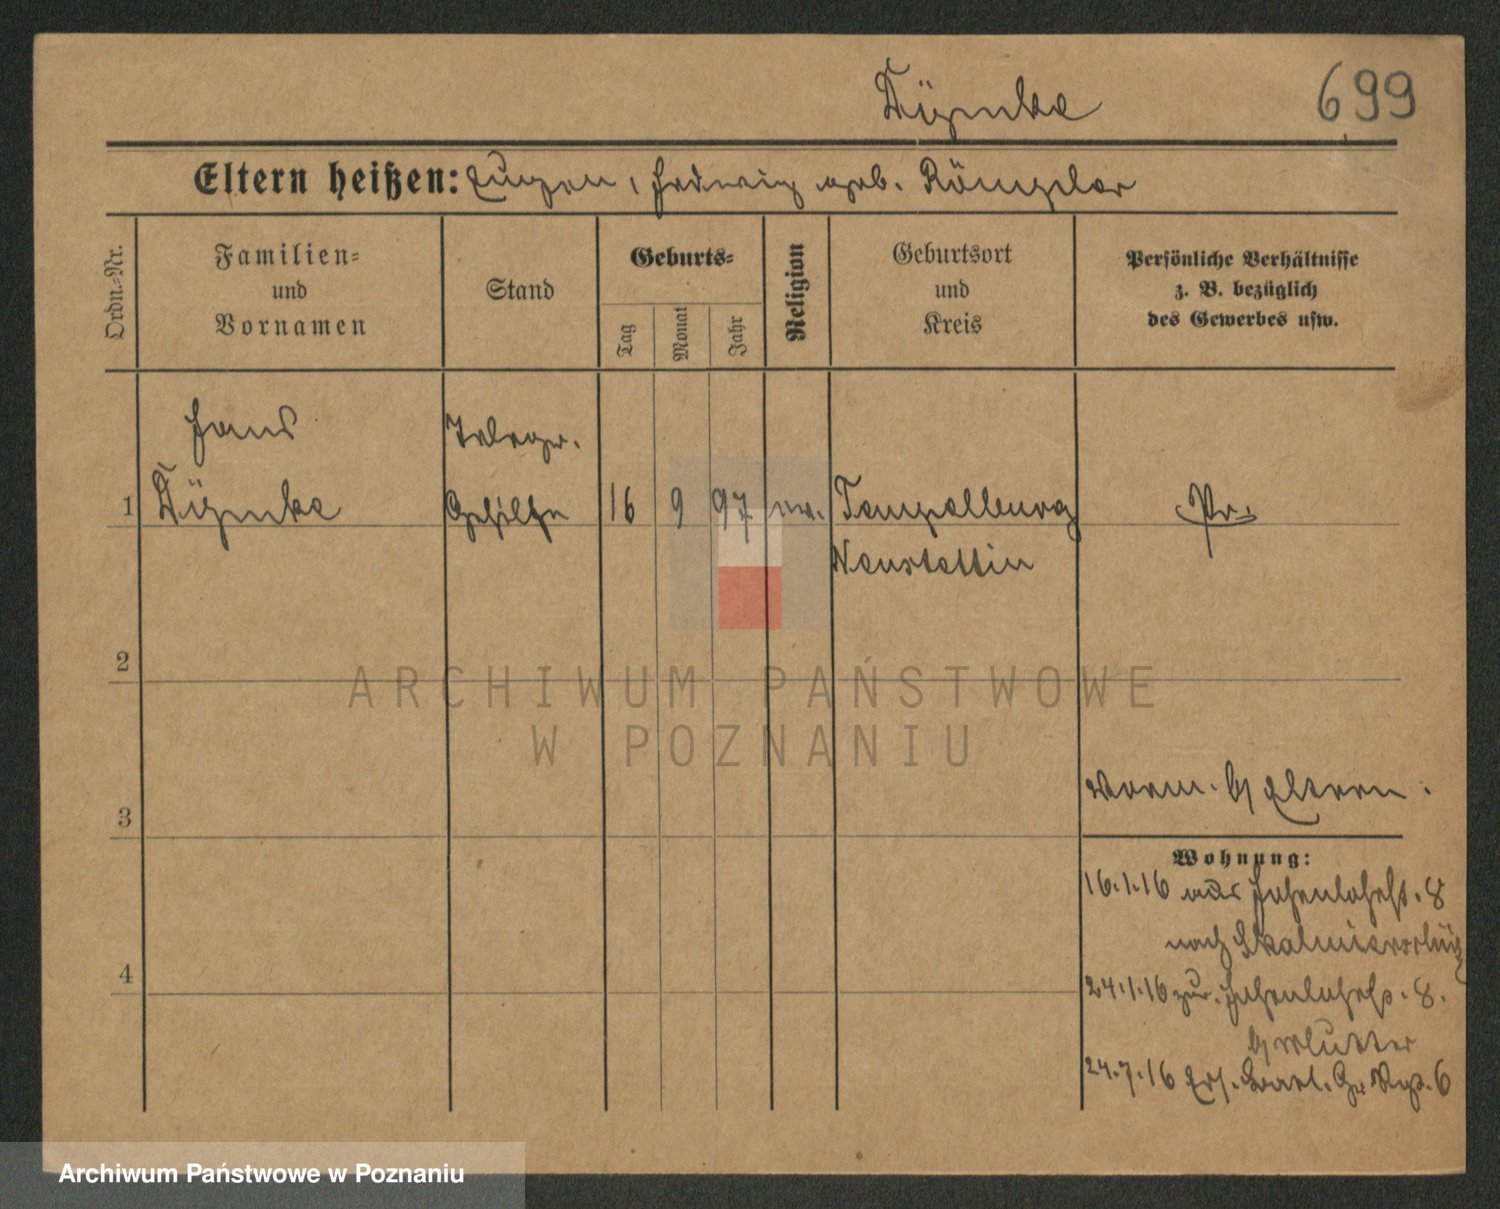 699
Eltern heißen: Eugen, Hedwig geb.
Ordn.-Nr.
Familien-
und
Vornamen
Stand
Geburts-
Tag
Monat
Jahr
Religion
Geburtsort
und
Kreis
Persönliche Verhältnisse
z. B. bezüglich
des Gewerbes usw.
Hans
Telegr.
1
Gehilfe
16 9 97 ev. Tempelburg
Pr.
Neustettin
2
ARCHIWUM PAŃSTWOWE
W POZNANIU
3
vorm. b/ Eltern.
Wohnung:
16.1.16 aus Hohenlohest. 8
nach
4
24.1.16 zur. Hohenlohestr. 8.
b/ Mutter
24.7.16 Ers. Batl. 6
Archiwum Państwowe w Poznaniu